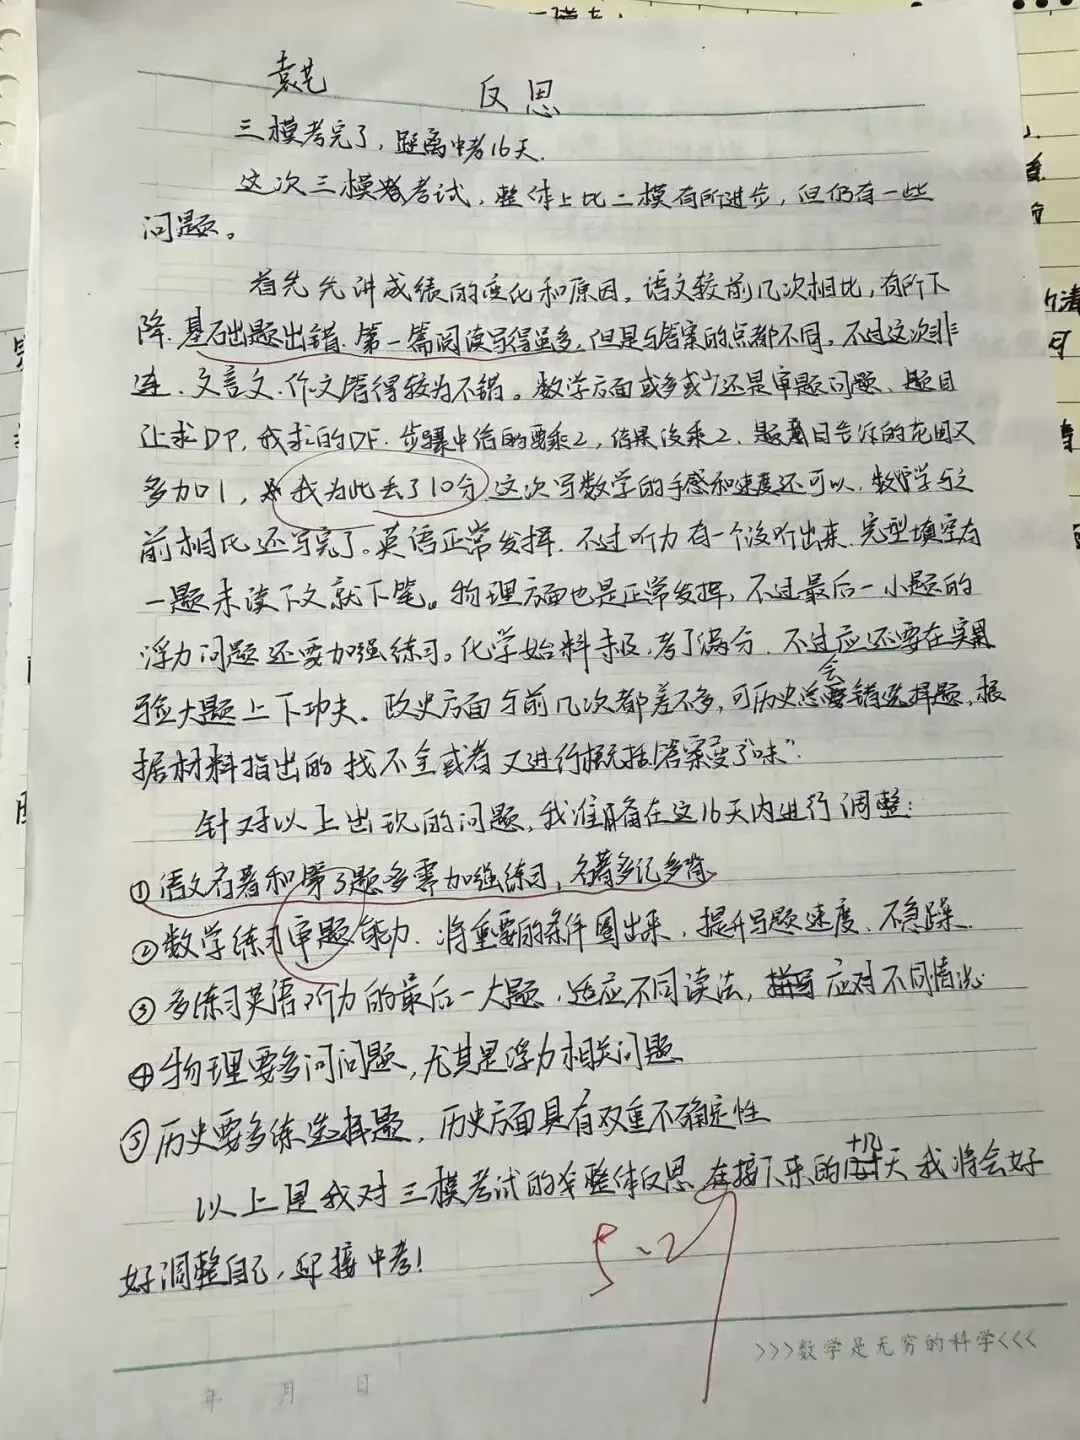 袁艺
反思
三模考完了，距离中考16天.
这次三模考试，整体上比二模有所进步，但仍有一些
问题。
首先先讲成绩的变化和原因，语文较前几次相比，有所下
降.基础题出错.第一篇阅读写得蛮多，但是与答案的点都不同，不过这次非
连.文言文.作文答得较为不错。数学方面或多或少还是审题问题、题目
让求DP，我求的DF.步骤中给的要乘2，结果没乘2、题目告诉的范围又
多加1，我为此丢了10分 这次写数学的手感和速度还可以，数学与之
前相比还写完了。英语正常发挥.不过听力有一个没听出来、完型填空有
一题未读下文就下笔。物理方面也是正常发挥，不过最后一小题的
浮力问题还要加强练习。化学始料未及，考了满分.不过应还要在实
验大题上下功夫。政史方面与前几次都差不多，可历史总会错选择题，根
据材料指出的找不全或者又进行概括答案变了"味".
针对以上出现的问题，我准备在这16天内进行调整：
①语文名著和第3题多需加强练习，名著多记多背
②数学练习审题能力.将重要的条件圈出来，提升写题速度、不急躁.
③多练习英语听力的最后一大题，适应不同读法，应对不同情况.
④物理要多问问题，尤其是浮力相关问题
⑤历史要多练选择题，历史方面具有双重不确定性
以上是我对三模考试的整体反思 在接下来的十几天 我将会好
好调整自己，迎接中考！
5.27
>>>数学是无穷的科学<<<
年 月 日